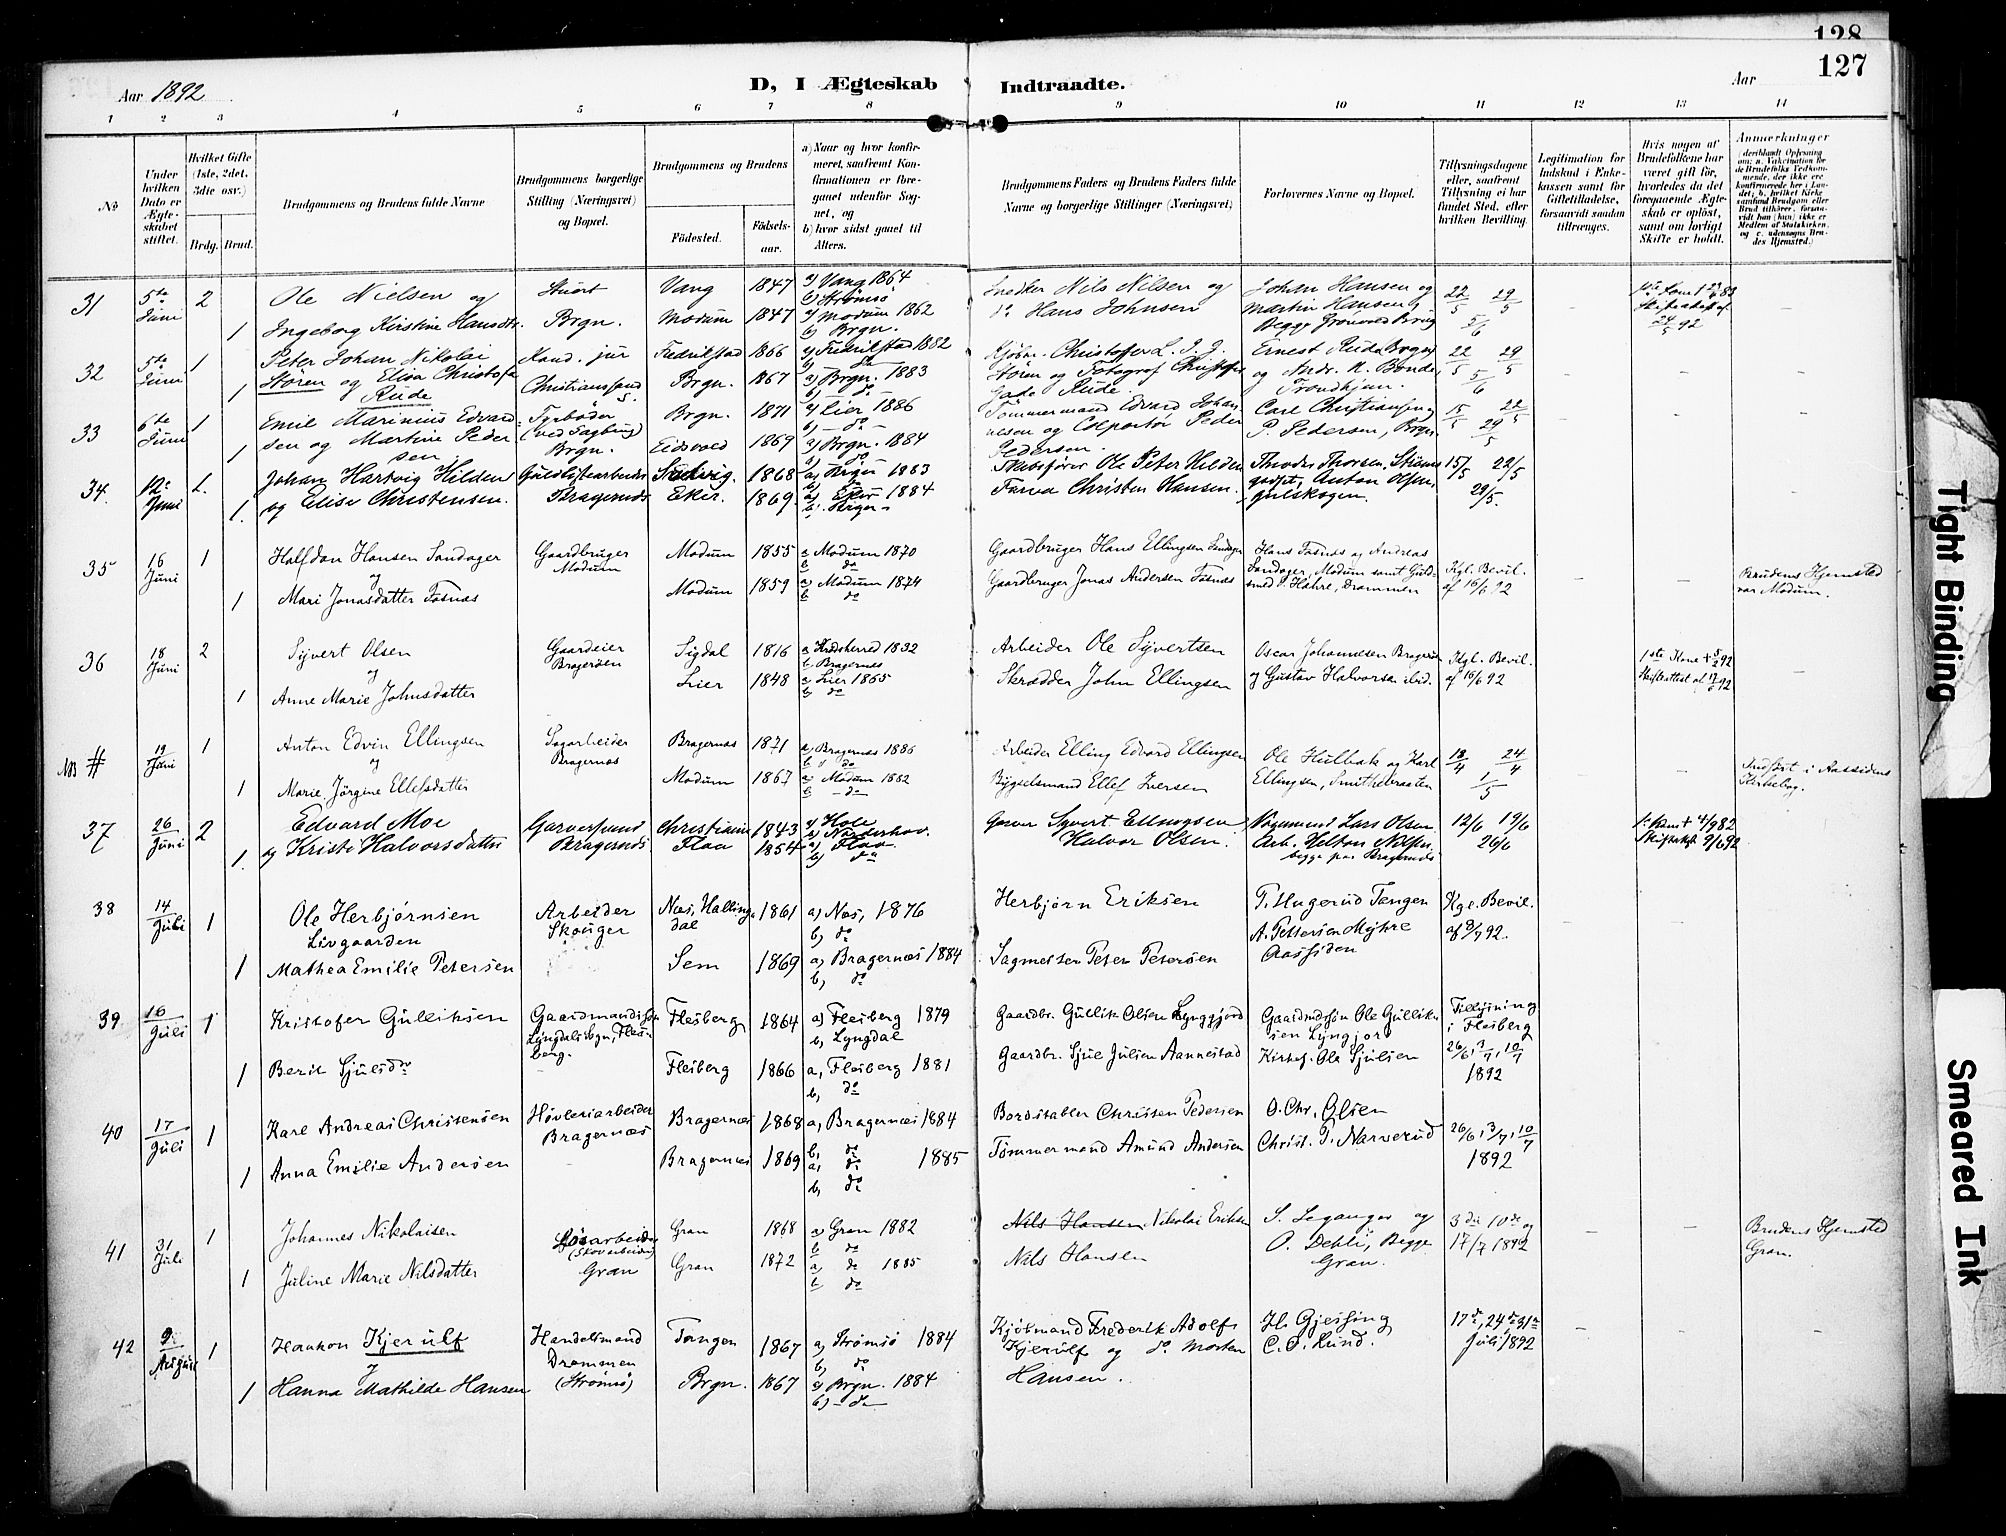 128
127
Aar 1892
D, I Ægteskab Indtraadte.
Aar
1 2 3 4 5 6 7 8 9 10 11 12 13 14
No
Under hvilken Dato er Ægteskabet stiftet.
Hvilket Gifte (1ste, 2det, 3die osv.)
Brdg. Brud.
Brudgommens og Brudens fulde Navne
Brudgommens borgerlige Stilling (Næringsvei) og Bopæl.
Brudgommens og Brudens
Fødested.
Fødselsaar.
a) Naar og hvor konfirmeret, saafremt Konfirmationen er foregaaet udenfor Sognet, og
b) hvor sidst gaaet til Alters.
Brudgommens Faders og Brudens Faders fulde Navne og borgerlige Stillinger (Næringsvei)
Forlovernes Navne og Bopæl.
Tillysningsdagene eller, saafremt Tillysning ei har fundet Sted, efter hvilken Bevilling.
Legitimation for Indskud i Enkekassen samt for Giftetilladelse, forsaavidt saadan tiltrænges.
Hvis nogen af Brudefolkene har været gift før, hvorledes da det foregaaende Ægteskab er opløst, samt om lovligt Skifte er holdt.
Anmerkninger
31 5te Juni 2 Ole Nielsen og Vang 1847 a) Vang 1864 b) Strømsø Snedker Nils Nilsen og Johan Hansen og 22/5 29/5
1 Ingeborg Kirstine Hansdtr. Brgn. Modum 1847 a) Modum 1862 b) Brgn. do Hans Johnsen Martin Hansen, Begge Brug 5/6
32 5te Juni 1 Peter Johan Nikolai Kand. jur Fredrikstad 1866 Christoffer L. J. J. Ernest Rude Brgn 22/5 29/5
1 Støren og Elisa Christofa Rude Christianssund Brgn. 1867 a) Brgn. 1883 b) do Støren og Fotograf Christoffer Gade Rude. og Andr. K. Bonde, Trondhjem. 5/6
33 6te Juni 1 Emil Marinius Edvard- Fyrbøder Brgn. 1871 a) Lier 1886 b) do Tømmermand Edvard Johan- Carl Christiansen 15/5 22/5
1 sen og Martine Pedersen (ved Sagbrug) Brgn. Eidsvold 1869 a) Brgn. 1884 b) do nsen og Colportør Peder Pedersen. P. Pedersen, Brgn. 29/5
34. 12te Juni 1. Johan Hartvig Hilden Guldlistearbeider 1868 a) Brgn 1883 Skibsfører Ole Peter Hilden Theodor Thorsen, 15/5 22/5
1. og Elise Christensen. Bragernæs Eker. 1869. a) Eker 1884 b) Brgn Christen Hansen. Anton Olsen 29/5.
35 16 Juni 1 Halfdan Hansen Sandager Gaardbruger Modum Modum 1855 a Modum 1870 b do Gaardbruger Hans Ellingsen Sandager Hans Fosnæs og Andreas
og
1 Mari Jonasdatter Fosnæs Modum 1859 a) Modum 1874 b do Gaardbruger Jonas Andersen Fosnæs Sandager, Modum samt Guldsmed P. Høhre, Drammen Kgl. Bevil. af 16/6 92 Brudens Hjemsted var Modum.
36 18 Juni 2 Syvert Olsen Gaardeier Bragernæs Sigdal 1816 a Krødsherred 1832 b Bragernæs Arbeider Ole Syvertsen Oscar Johannesen Bragernæs Kgl. Bevil. 1ste Kone + 5/2 92
og
1 Anne Marie Johnsdatter Lier 1848 a) Lier 1865 b do Skrædder John Ellingsen og Gustav Halvorsen ibid. af 16/6 92
NB # 19 Juni 1 Anton Edvin Ellingsen Sagarbeider Bragernæs Bragernæs 1871 a) Bragernæs 1886 b do Arbeider Elling Edvard Ellingsen Ole Hulbak og Karl 18/4 24/4
og
1 Marie Jørgine Ellefsdatter Modum 1867 a) Modum 1882 b do Bygselmand Ellef Iversen Ellingsen, Smithebraaten 1/5 Indført i Aassidens Kirkebog.
37 26 Juni 2 Edvard Moe Garversvend Christiania 1843 a) Hole b) Norderhov. Garver Syvert Ellingsen Vognmand Lars Olsen 12/6 19/6 1. Kone + 4/9 82
1. og Kristi Halvorsdatter Bragernæs Flaa 1854 a) Flaa b) do Halvor Olsen. Arb. Helton Nilsen begge paa Bragernæs 26/6 Skifteattest 9/6 92
38 14 Juli 1 Ole Herbjørnsen Livgaarden Arbeider Skouger Næs, Hallingdal 1861 a) Næs, 1876 b) do Herbjørn Eriksen T. Hagerud Tangen Kgl. Bevil.
1 Mathea Emilie Petersen Sem 1869 a) Bragernæs 1884 b) do Sagmester Peter Petersen A. Pettersen Myhre Aassiden af 8/7 92.
39 16 Juli 1 Kristofer Gulliksen Gaardmandssøn Lyngdals Sogn, Flesberg. Flesberg 1864 a) Flesberg 1879 b) Lyngdal Gaardbr. Gullik Olsen Lynggjord Gaardmdssøn Ole Gulliksen Lyngjord Tillysning i Flesberg
1 Berit Sjulsdr Flesberg 1866 a, Flesberg 1881 b, do Gaardbr. Sjul Julsen Aannestad Kirkes. Ole Sjulsen 26/6, 3/7, 10/7 1892
40 17 Juli 1 Karl Andreas Christensen Høvleriarbeider Bragernæs Bragernæs 1868 a, Bragernæs 1884 b, do Bordstabler Christen Pedersen O. Chr. Olsen 26/6, 3/7, 10/7
1 Anna Emilie Andersen Bragernæs 1869 a, do 1885 b, do Tømmermand Amund Andersen Christ. T. Narverud 1892
41 31 Juli 1 Johannes Nikolaisen (Skovarbeider) Gran Gran 1868 a) Gran 1882 b do Nils Hansen Nikolai Eriksen S. Leganger og 3die 10de og Brudens Hjemsted Gran.
1 Juline Marie Nilsdatter Gran 1872 a) do 1885 b do Nils Hansen O. Dehli, Begge Gran. 17/7 1892
42 9de August 1 Haakon Kjerulf Handelsmand Drammen (Strømsø) Tangen 1867 a) Strømsø 1884 b) do Kjøbmand Frederik Adolf Kjerulf og do Morten H. Gjessing 17de, 24de 31te
1 Hanna Mathilde Hansen Brgn. 1867 a) Brgn. 1884 b) do Hansen. C. O. Lund. Juli 1892
Tight Binding
Smeared Ink